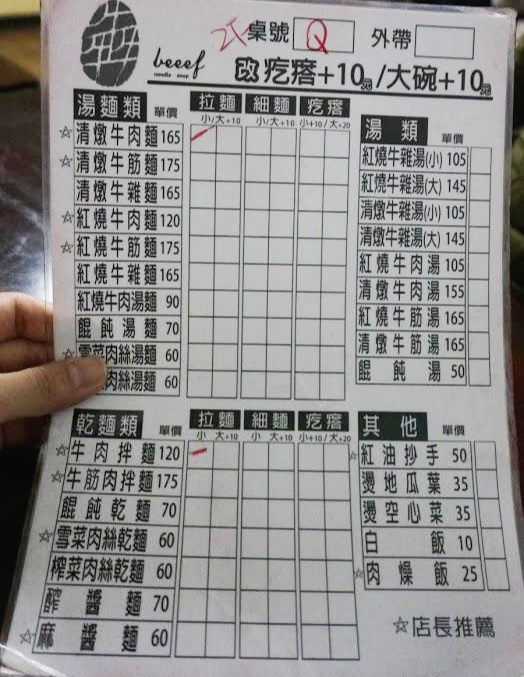 桌號 Q 外帶
beeef
noodle soup
改 疙瘩+10元/大碗+10元
湯麵類 單價 拉麵 細麵 疙瘩
小/大+10 小/大+10 小+10/大+20
☆清燉牛肉麵 165
☆清燉牛筋麵 175
清燉牛雜麵 165
☆紅燒牛肉麵 120
☆紅燒牛筋麵 175
紅燒牛雜麵 165
紅燒牛肉湯麵 90
餛飩湯麵 70
☆雪菜肉絲湯麵 60
肉絲湯麵 60
湯類 單價
紅燒牛雜湯(小) 105
紅燒牛雜湯(大) 145
清燉牛雜湯(小) 105
清燉牛雜湯(大) 145
紅燒牛肉湯 105
清燉牛肉湯 155
紅燒牛筋湯 165
清燉牛筋湯 165
餛飩湯 50
乾麵類 單價 拉麵 細麵 疙瘩
小 大+10 小 大+10 小+10/大+20
☆牛肉拌麵 120
☆牛筋肉拌麵 175
餛飩乾麵 70
☆雪菜肉絲乾麵 60
榨菜肉絲乾麵 60
酢醬麵 70
☆麻醬麵 60
其他 單價
☆紅油抄手 50
燙地瓜葉 35
燙空心菜 35
白飯 10
☆肉燥飯 25
☆店長推薦